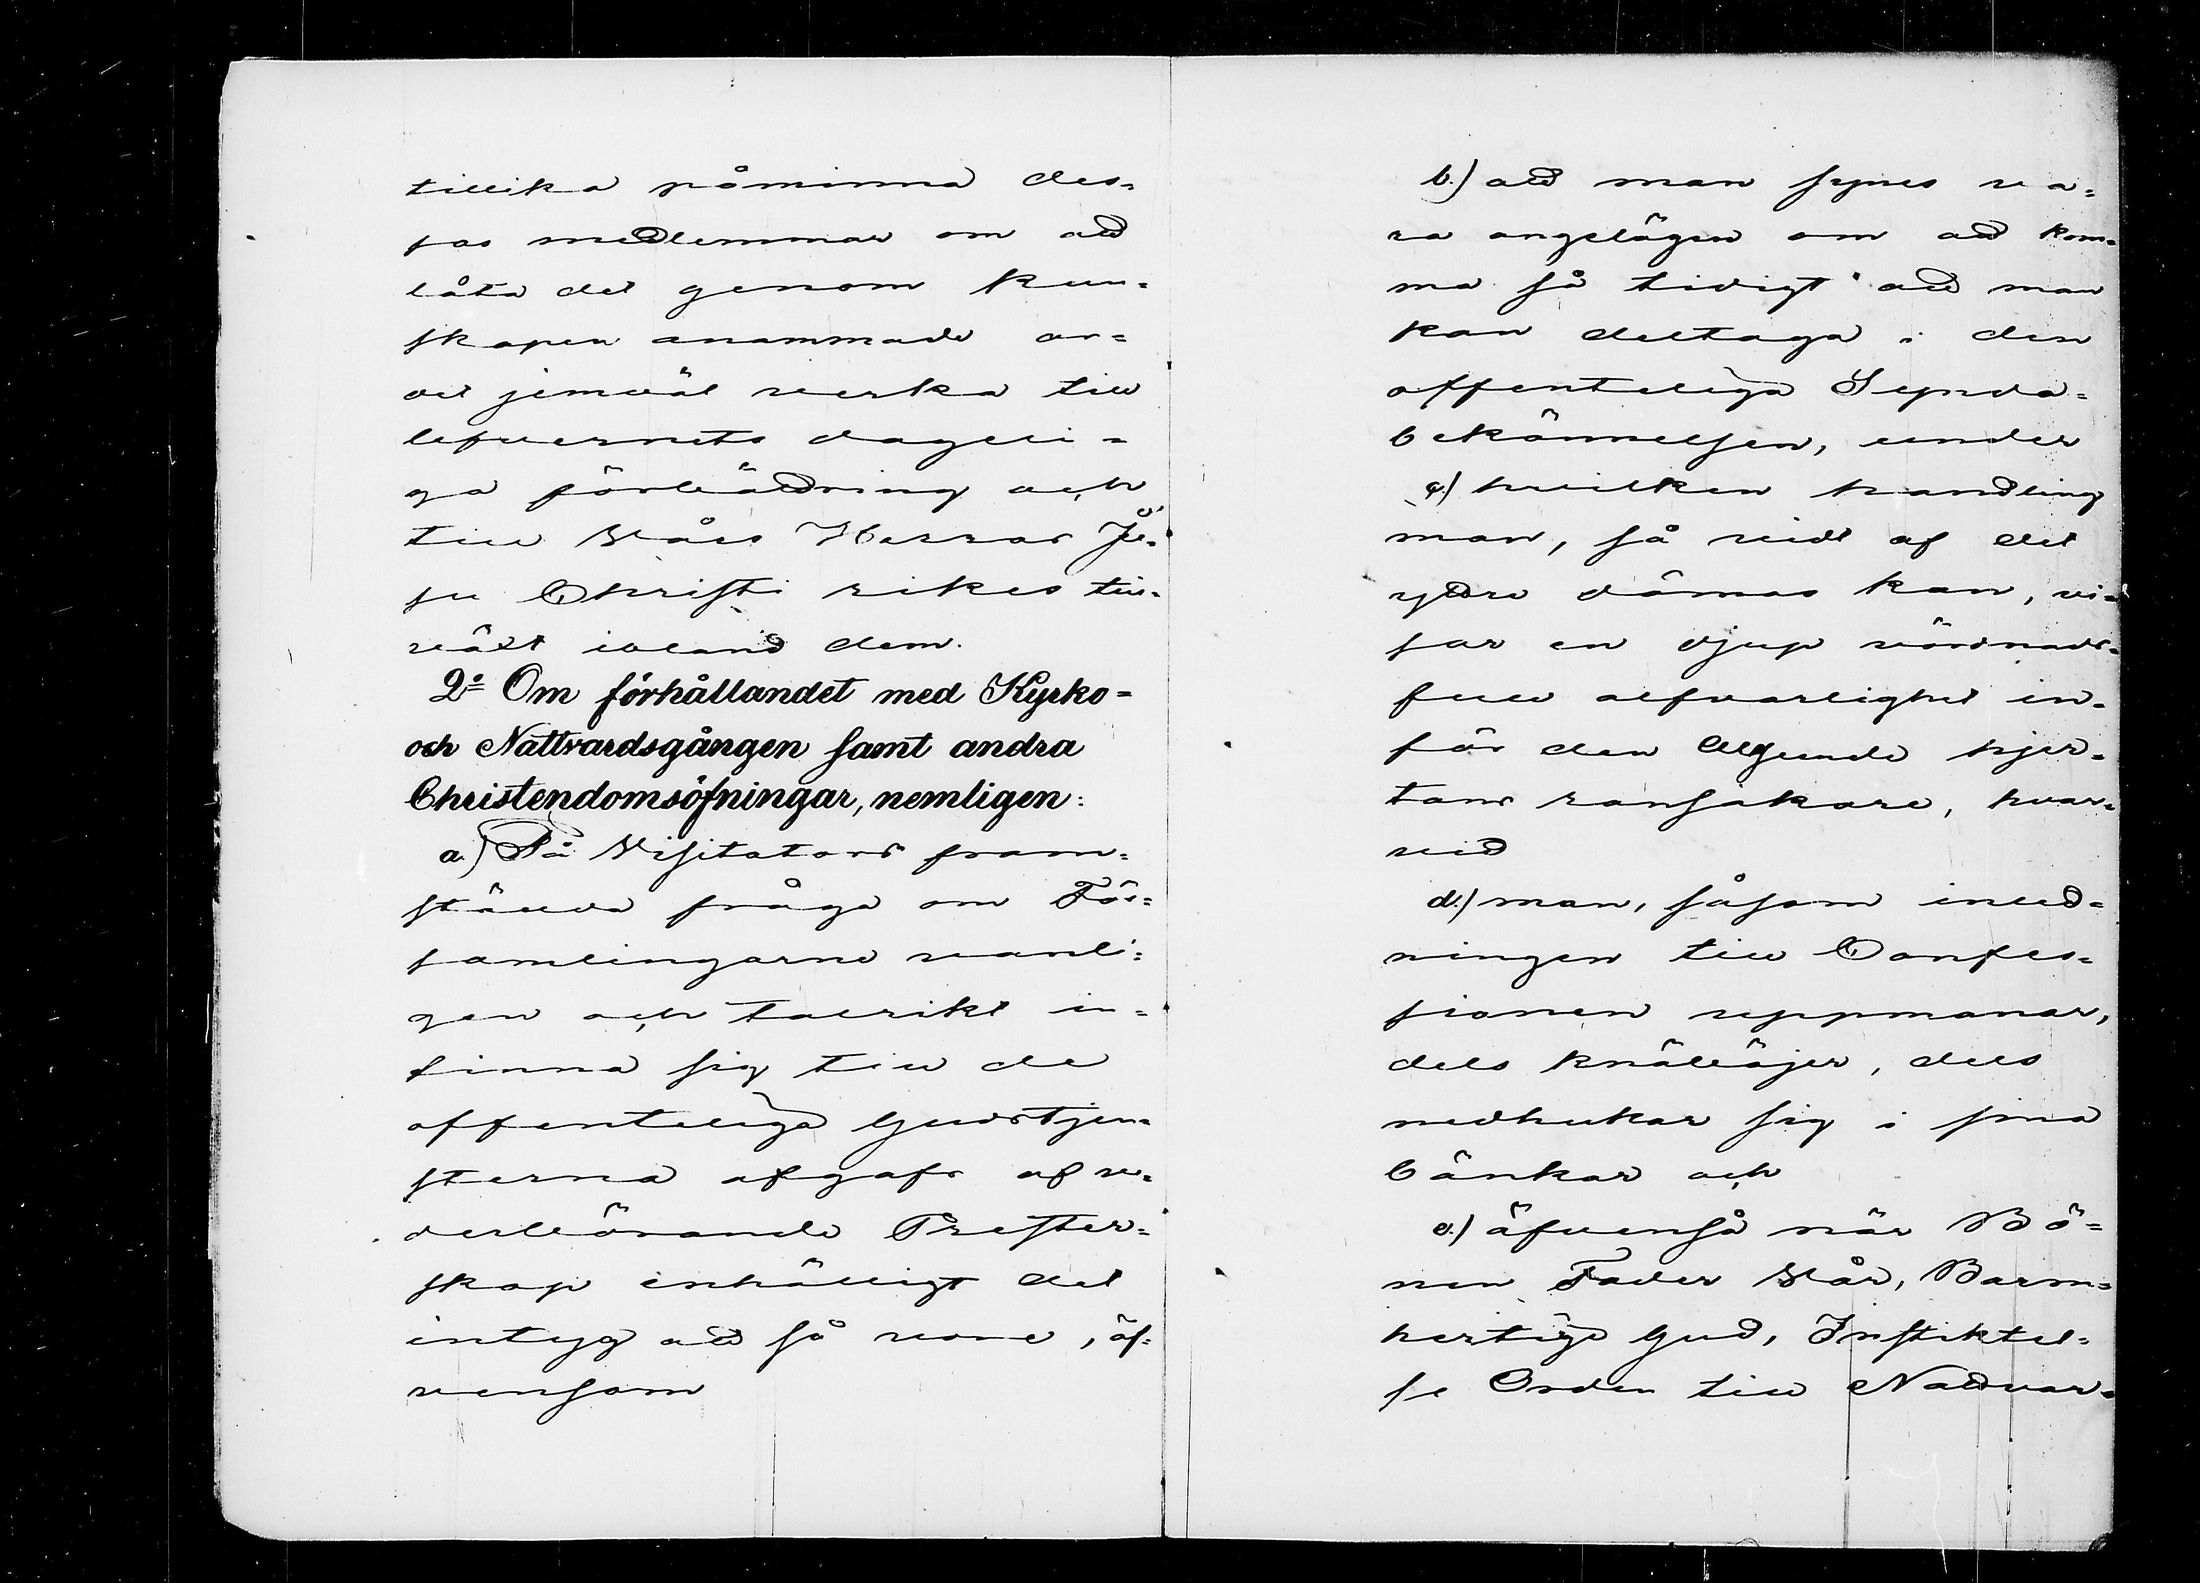 tillika påminna des=
sas medlemmar om att
låta det genom kun=
skapen anammade or=
det jemväl verka till
lefvernets dageli=
ga förbättring och
till Vårs Herras Je=
su Christi rikes till=
växt ibland dem.
2:o Om förhållandet med Kyrko=
och Nattvardsgången samt andra
Christendomsöfningar, nemligen:
a.) På Visitators fram=
ställda fråga om För=
samlingarne vanli=
gen och talrikt in=
finna sig till de
offenteliga Gudstjen=
sterna afgafs af ve=
derbörande Prester=
skap enhälligt det
intyg att så vore, äf=
vensom
b.) att man synes va=
ra angelägen om att kom=
ma så tidigt att man
kan deltaga i den
offenteliga Synda=
bekännelsen, under
c.) hvilken handling
man, så vidt af det
yttre dömas kan, vi=
sar en djup vördnads=
full alfvarlighet in=
för den Allseende hjer=
tans ransakare, hvar=
vid
d.) man, såsom inled=
ningen till Confes=
sionen uppmanar,
dels knäböjer, dels
nedhukar sig i sina
bänkar och
e.) äfvenså när Bö=
nen Fader Vår, Barm=
hertige Gud, Instiktel=
se Orden till Nattvar=